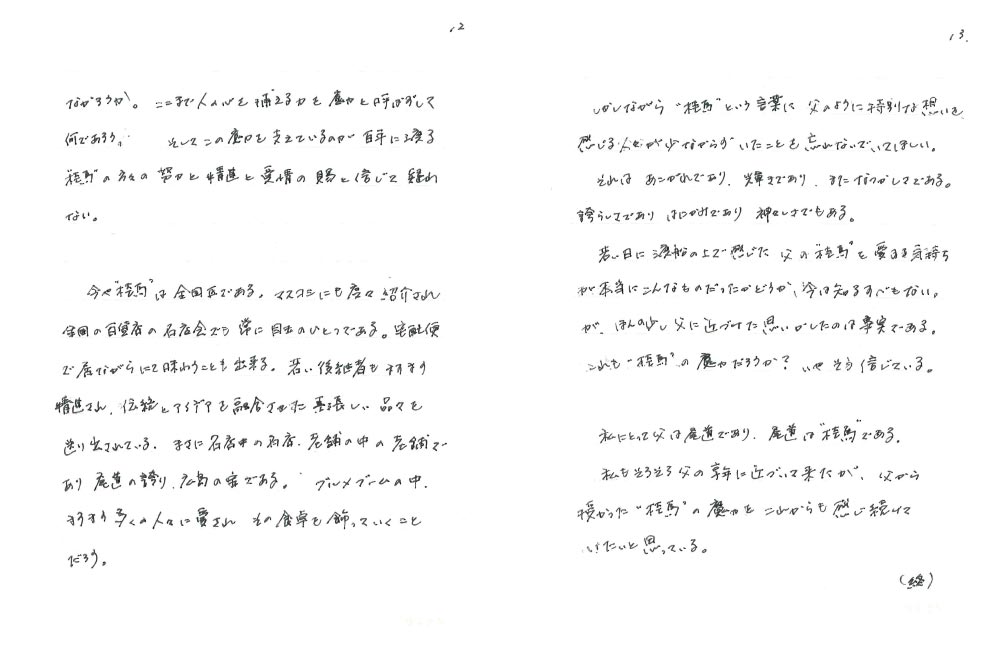 12
なかろうか。ここまで人の心を捕える力を魔力と呼ばずして
何であろう。そしてこの魔力を支えているのが百年に渡る
"桂馬"の方々の努力と精進と愛情の賜と信じて疑わ
ない。
今や"桂馬"は全国区である。マスコミにも度々紹介され
全国の百貨店の名店会でも常に目玉のひとつである。宅配便
で居ながらにて味わうことも出来る。若い後継者もますます
精進され、伝統とアイデアを融合させた素晴しい品々を
送り出されている。まさに名店中の名店、老舗の中の老舗で
あり尾道の誇り、広島の宝である。グルメブームの中、
ますます多くの人々に愛され その食卓を飾っていくこと
だろう。
13.
しかしながら"桂馬"という言葉に父のように特別な想いを
感じる人々が少なからずいたことを忘れないでいてほしい。
それは あこがれであり、輝きであり、またなつかしさである。
誇らしさであり はにかみであり 神々しさでもある。
若い日に渡船の上で感じた 父の"桂馬"を愛する気持ち
が本当にこんなものだったかどうか、今は知るすべもない。
が、ほんの少し父に近づけた思いがしたのは事実である。
これも"桂馬"の魔力だろうか？ いやそう信じている。
私にとって父は尾道であり、尾道は"桂馬"である。
私もそろそろ父の享年に近づいて来たが、父から
授かった"桂馬"の魔力を これからも感じ続けて
いたいと思っている。
(終)